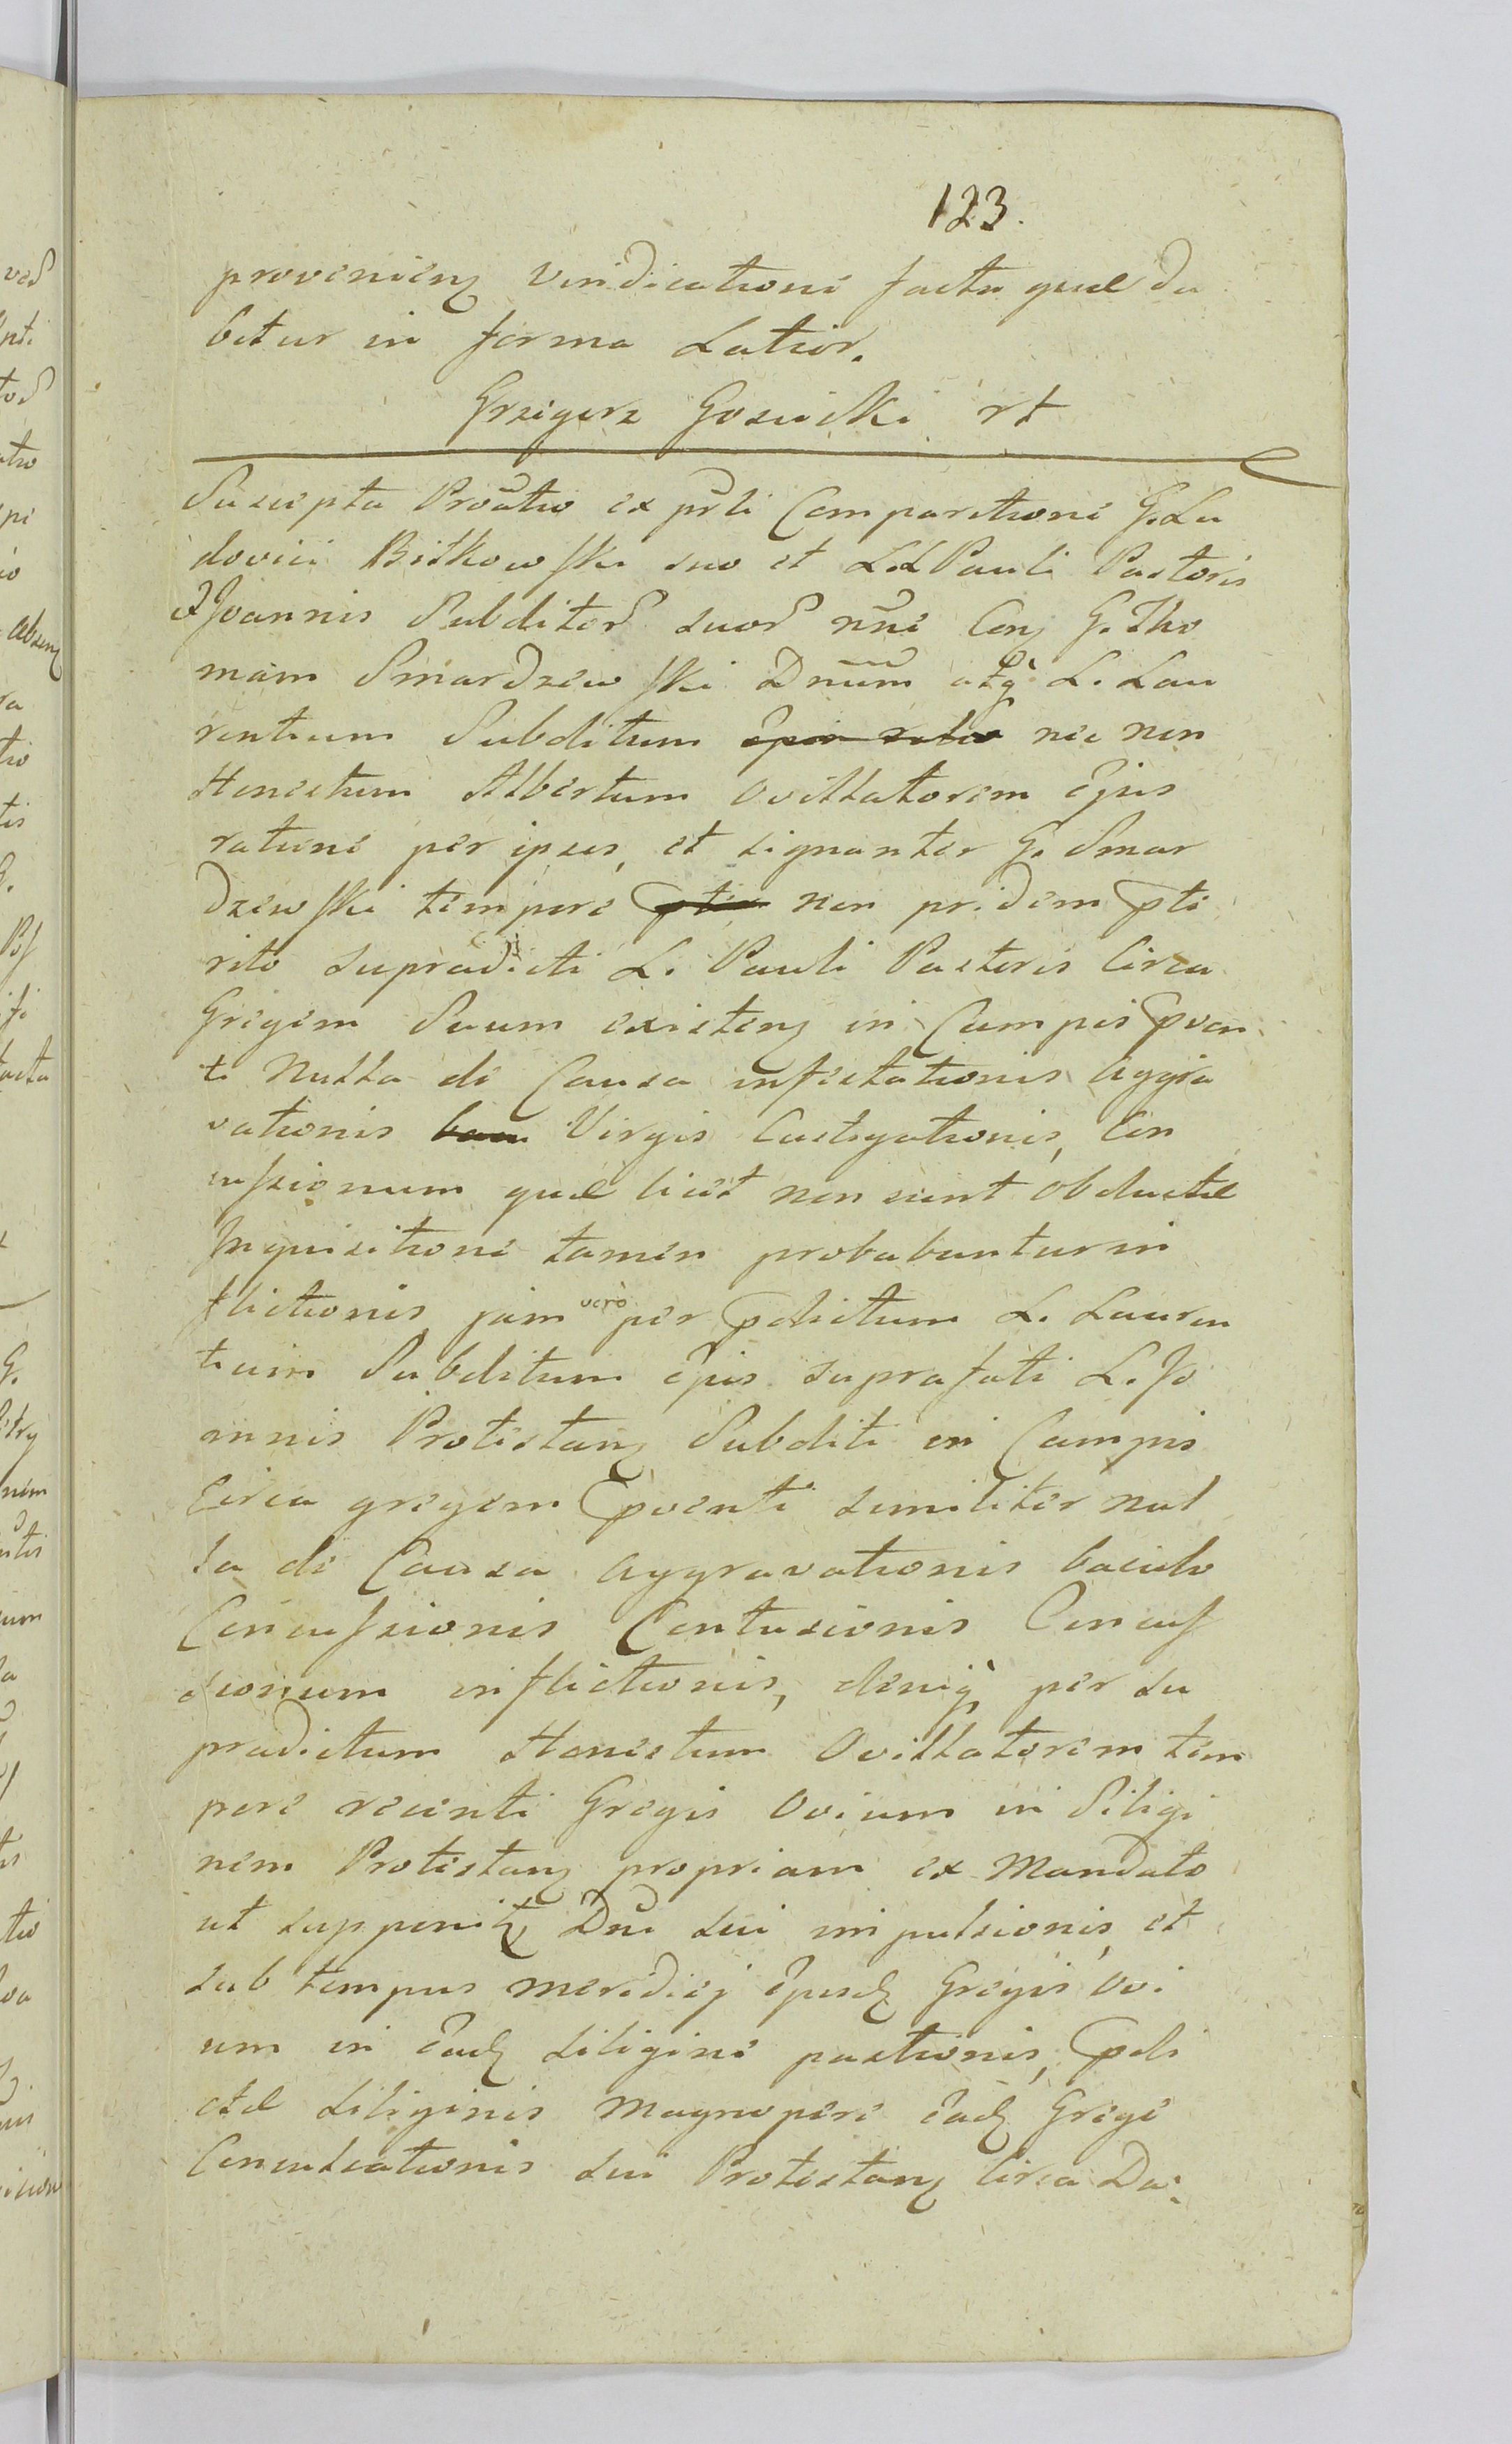 123.
provenieng Vindicatione facta quæ da
bitur in forma Latior.
Grzegorz Gosuicki rt
Suscepta Prouatio ex prsli Comparitione G. Lu
dovici Bitkowski suo et LL Pauli Pastoris
& Joannis Subditor suor nne Cong G. Tho
mam Smardzewski Dnum atq L. Lau
rentium Subditum nec non
Honestum Albertum Ovillatorem Ejus
ratione per ipsos, et signanter G. Smar
dzewski tempore non pridem pte
rito supradicti L. Pauli Pastoris Circa
Gregem Suum existeng in Campis pven
ti Nulla de Causa infestationis aggra
vationis Virgis Castigationis, Con
cussionum quæ licet non sunt obductæ
Inquisitione tamen probabuntur in
flictionis, jam vero per pdictum L. Lauren
tium Subditum Ejus suprafati L. Jo
annis Protestang Subditi in Campis
Circa gregem pventi similiter nul
la de Causa aggravationis baculo
Concussionis Contusionis Concus
sionum inflictionis, deniq per su
pradictum Honestum Ovillatorem tem
pore recenti Gregis Ovium in Siligi
nem Protestang propriam ex Mandato
ut supponitg Dni sui impulsionis, et
sub tempus meridiej Ejusdg Gregis Ovi
um in Eadg siligine pastionis, pdi
ctæ siliginis Magnopere Eadg Grege
Conculcationis sui Protestang Circa Da: